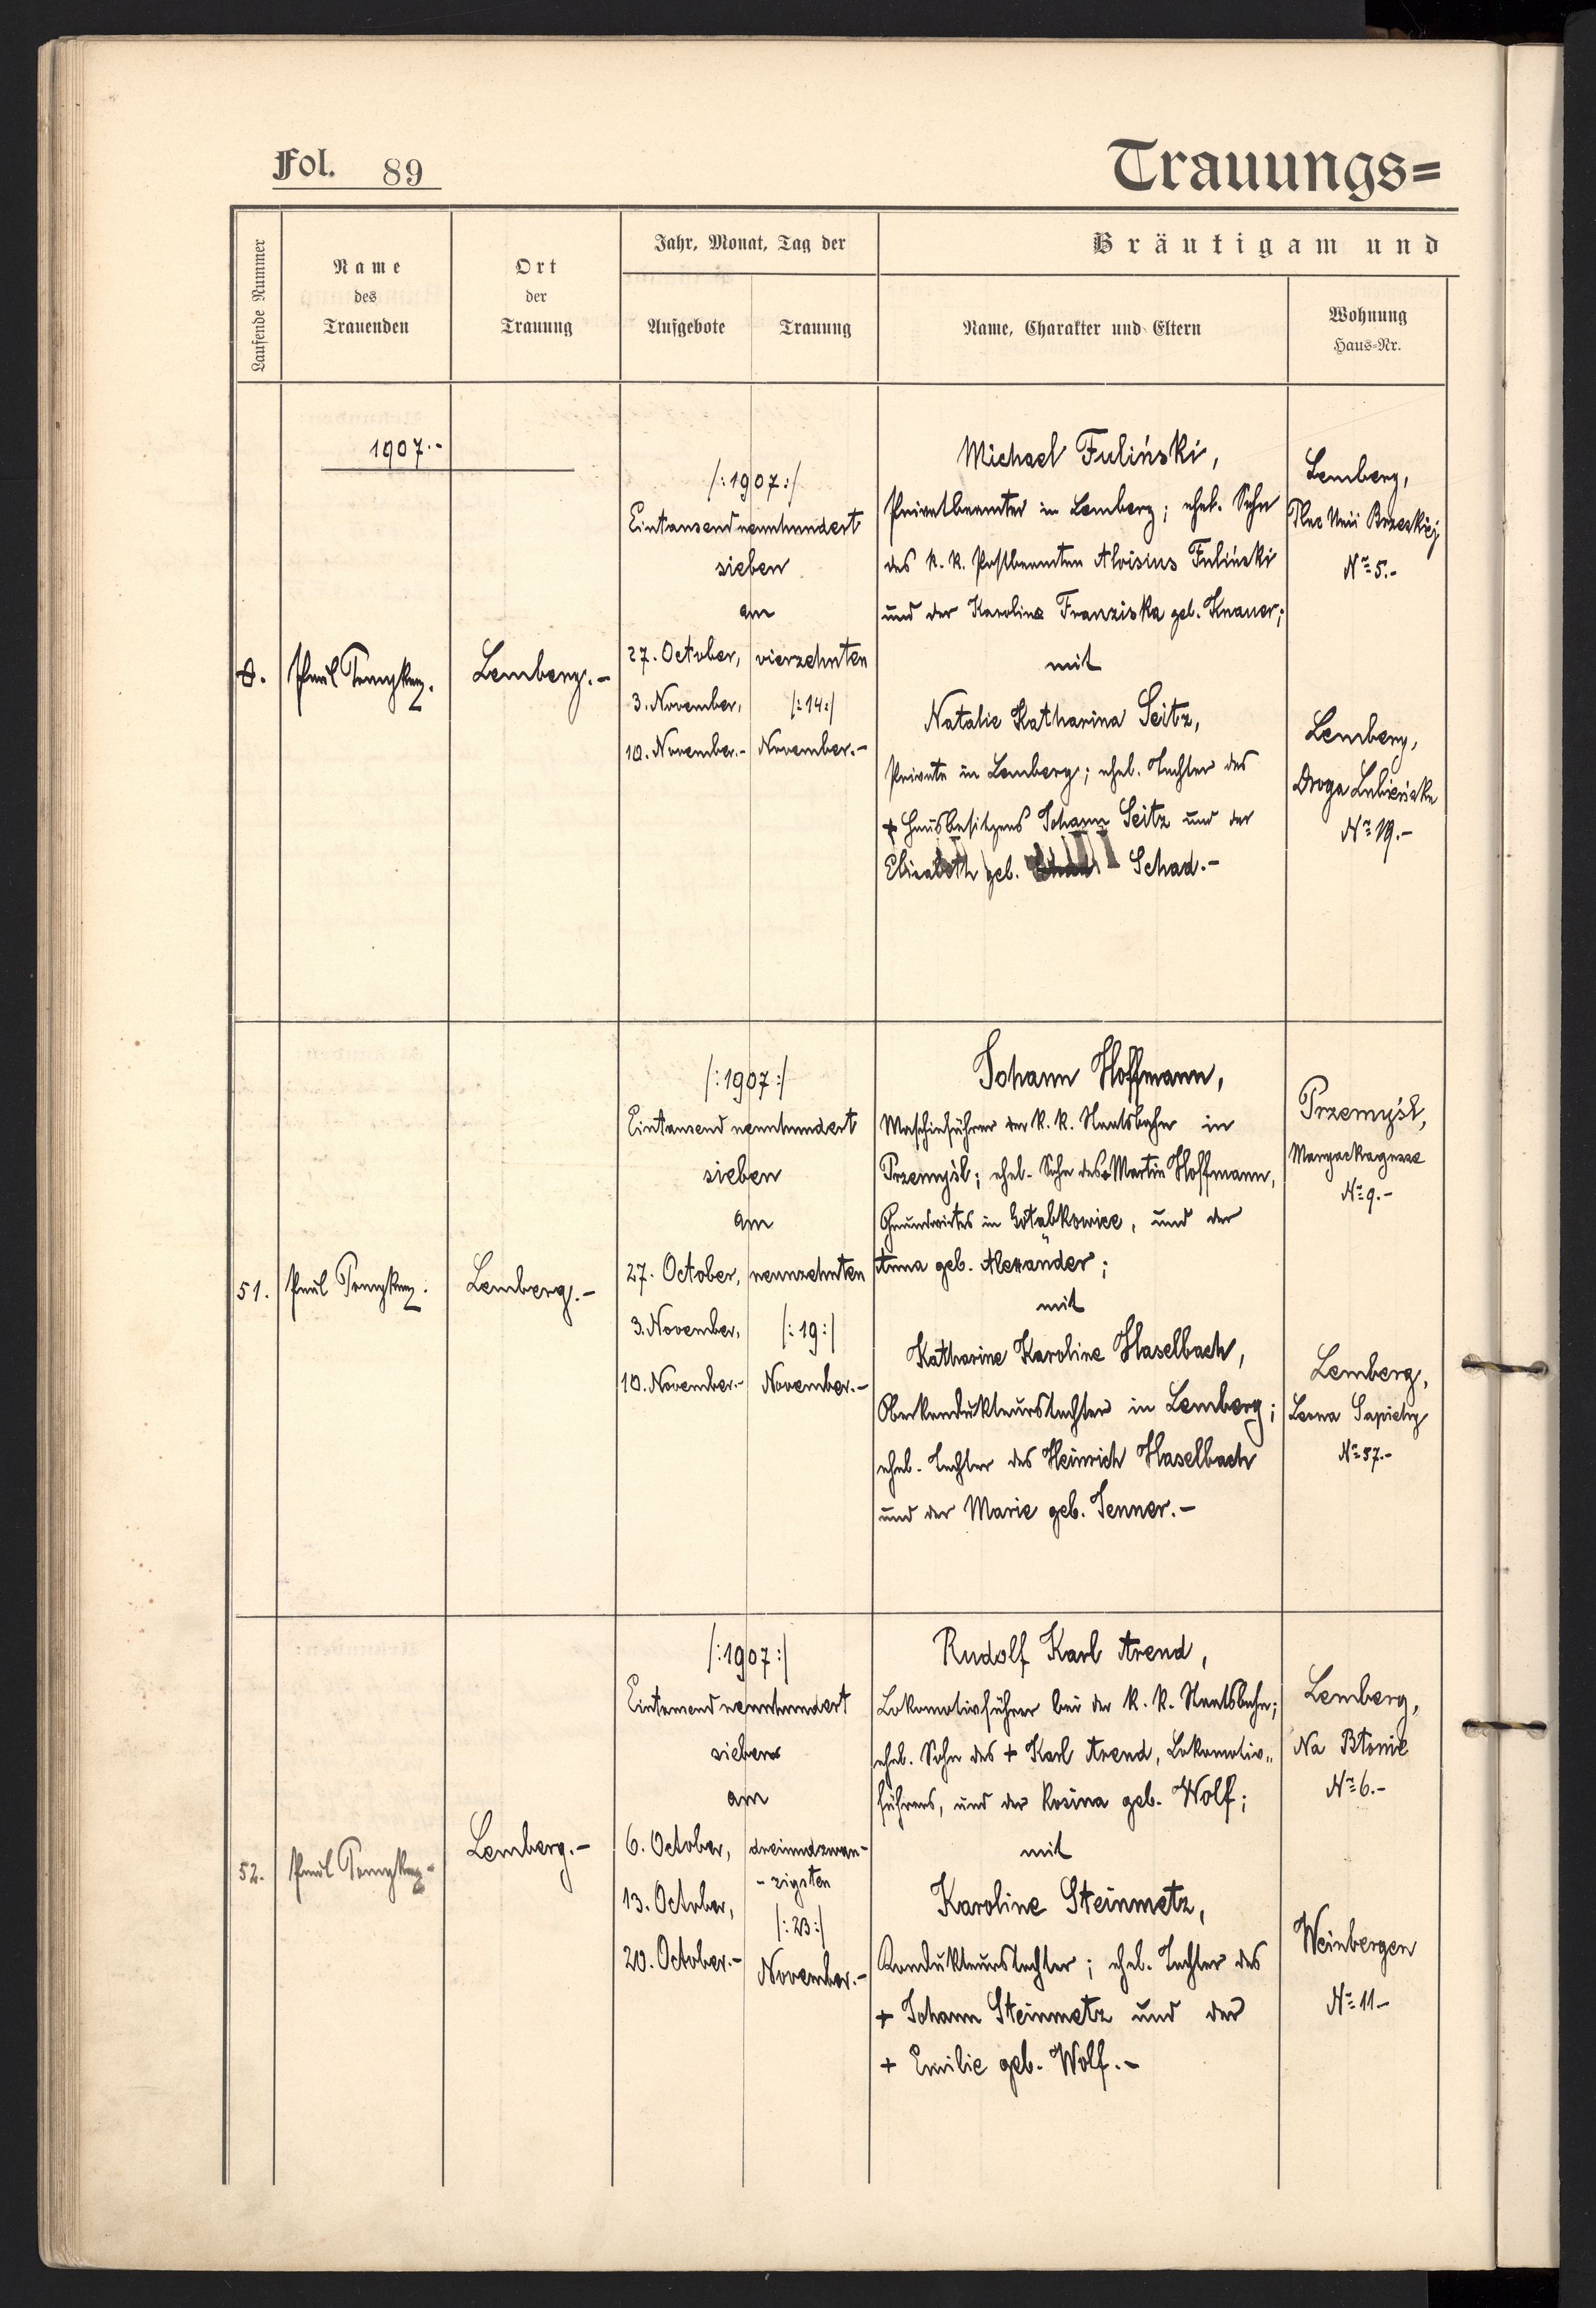 Fol. 89
Trauungs=
Laufende Nummer
Name
des
Trauenden
Ort
der
Trauung
Jahr, Monat, Tag der
Aufgebote
Trauung
Bräutigam und
Name, Charakter und Eltern
Wohnung
Haus=Nr.
1907.-
Lemberg.-
/:1907:/
Eintausendneunhundert
sieben
am
27. October,
3. November,
10. November.-
vierzehnten
/:14:/
November.-
Michael Fuliński,
Privatbeamter in Lemberg; ehel. Sohn
des k. k. Postbeamten Aloisius Fuliński
und der Karolina Franziska geb. Knauer;
mit
Natalie Katharina Seitz,
Private in Lemberg; ehel. Tochter des
+ Hausbesitzers Johann Seitz und der
Elisabeth geb. Schad.-
Lemberg,
Plac Unii Brzeskiej
No 5.-
Lemberg,
Droga
No 19.-
51.
Paul
Lemberg.-
/:1907:/
Eintausendneunhundert
sieben
am
27. October,
3. November,
10. November.-
neunzehnten
/:19:/
November.-
Johann Hoffmann,
Maschinführer der k. k. Staatsbahn in
Przemyśl; ehel. Sohn des Martin Hoffmann,
Grundwirtes in und der
Anna geb. Alexander;
mit
Katharine Karoline Haselbach,
Oberkondukteurstochter in Lemberg;
ehel. Tochter des Heinrich Haselbach
und der Marie geb. Jenner.-
Przemyśl,
No 9.-
Lemberg,
Leona Sapiehy
No 57.-
52.
Paul
Lemberg.-
/:1907:/
Eintausendneunhundert
sieben
am
6. October,
13. October,
20. October.-
dreiundzwan-
-zigsten
/:23:/
November.-
Rudolf Karl Arend,
Lokomotivführer bei der k. k. Staatsbahn;
ehel. Sohn des + Karl Arend, Lokomotiv„
führers, und der Rosina geb. Wolf;
mit
Karoline Steinmetz,
Kondukteurstochter; ehel. Tochter des
+ Johann Steinmetz und der
+ Emilie geb. Wolf.-
Lemberg,
Na Błonie
No 6.-
Weinbergen
No 11.-